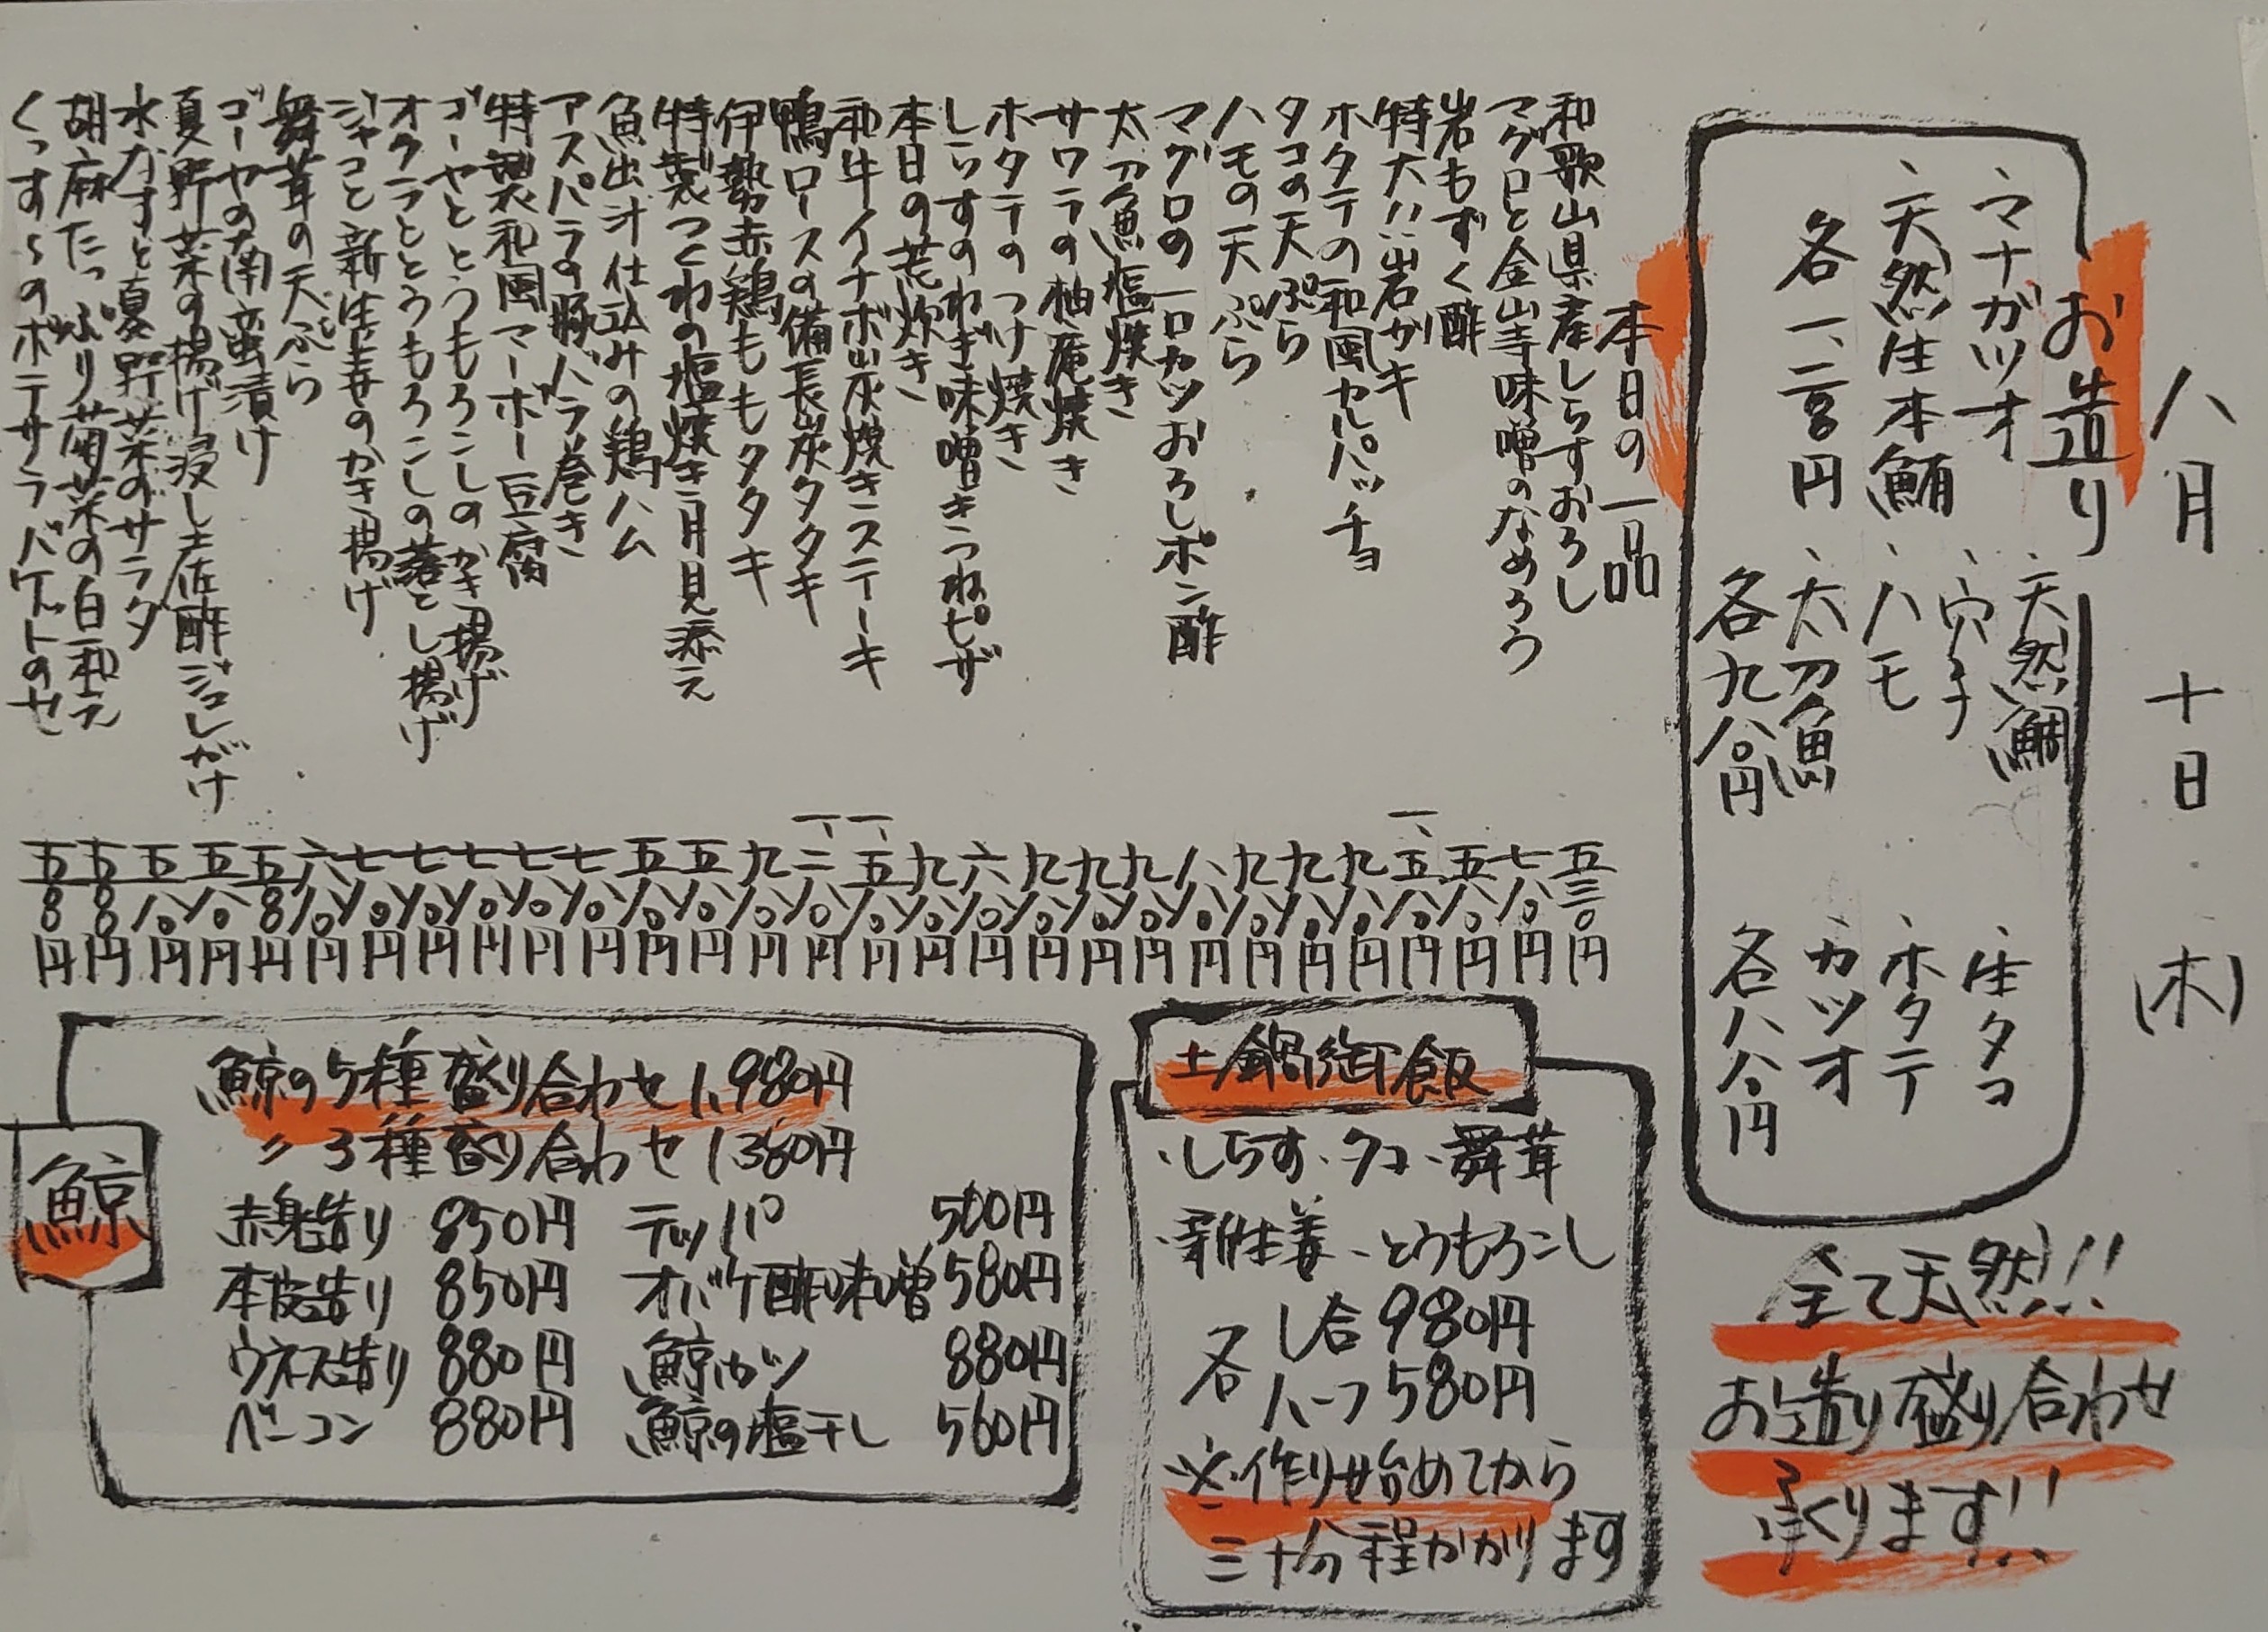 八月 十日 (木)
お造り
、マナガツオ
、天然生本鮪
各一、二八〇円
、天然鯛
、穴子
、ハモ
、太刀魚
各九八〇円
、生タコ
、ホタテ
、カツオ
各八八〇円
全て天然!!
お造り盛り合わせ
承ります!!
本日の一品
和歌山県産しらすおろし 五三〇円
マグロと金山寺味噌のなめろう 七八〇円
岩もずく酢 五八〇円
特大!!岩ガキ 一、五八〇円
ホタテの和風カルパッチョ 九八〇円
タコの天ぷら 九八〇円
ハモの天ぷら 九八〇円
マグロの一口カツおろしポン酢 八八〇円
太刀魚塩焼き 九八〇円
サワラの柚庵焼き 九八〇円
ホタテのつけ焼き 九八〇円
しらすのねぎ味噌きつねピザ 六八〇円
本日の荒炊き 九八〇円
和牛イチボ炭焼きステーキ 一、五八〇円
鴨ロースの備長炭タタキ 一、二八〇円
伊勢赤鶏ももタタキ 九八〇円
特製つくねの塩焼き月見添え 五八〇円
魚出汁仕込みの鶏ハム 五八〇円
アスパラの豚バラ巻き 七八〇円
特製和風マーボー豆腐 七八〇円
ゴーヤととうもろこしのかき揚げ 七八〇円
オクラととうもろこしの落とし揚げ 七八〇円
ジャコと新生姜のかき揚げ 七八〇円
舞茸の天ぷら 六八〇円
ゴーヤの南蛮漬け 五〇〇円
夏野菜の揚げ浸し土佐酢ジュレがけ 五八〇円
水なすと夏野菜のサラダ 五八〇円
胡麻たっぷり菊菜の白和え 五〇〇円
くっす〜のポテサラバケットのせ 五〇〇円
土鍋御飯
・しらす・タコ・舞茸
・新生姜・とうもろこし
各 1合 980円
ハーフ 580円
※作り始めてから
三十分程かかります
鯨
鯨の5種盛り合わせ 1,980円
〃 3種盛り合わせ 1380円
赤身造り 850円 テッパ 500円
本皮造り 850円 オバケ酢味噌 580円
ウネス造り 880円 鯨カツ 880円
ベーコン 880円 鯨の塩干し 560円